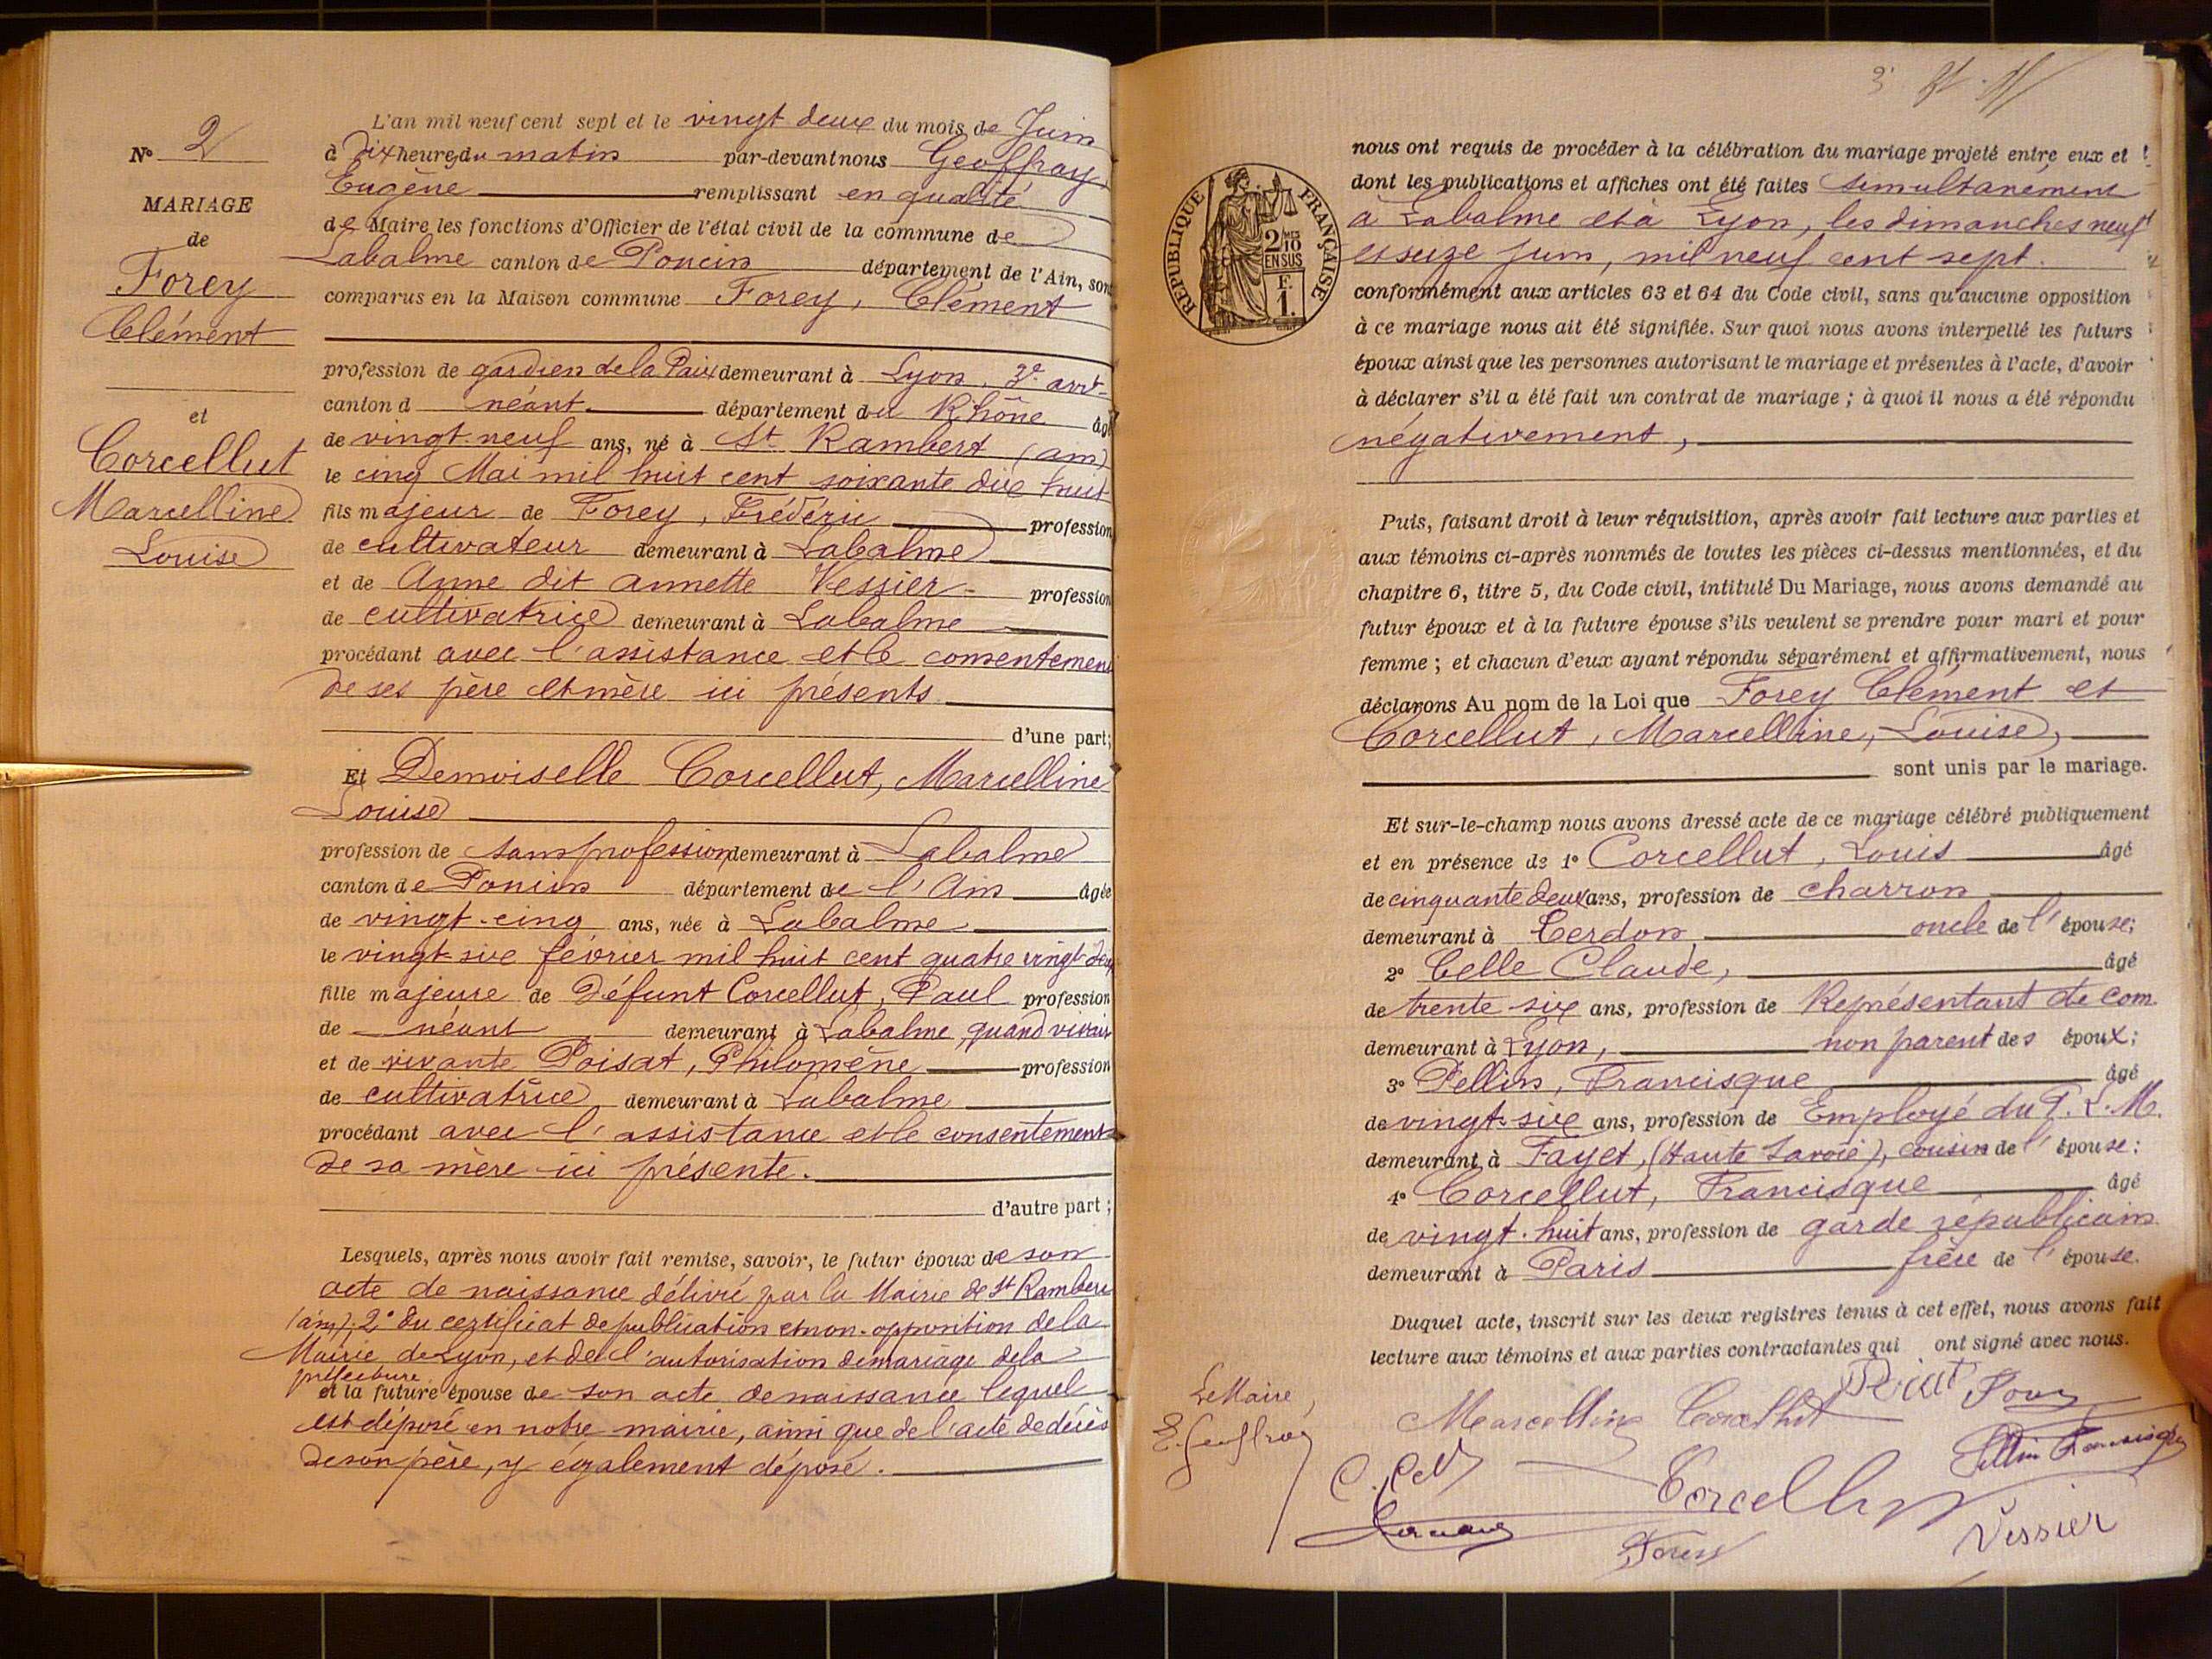 N° 2
MARIAGE
de
Forey
Clément
et
Corcellut
Marcelline
Louise
L'an mil neuf cent sept et le vingt deux du mois de Juin
à Dix heures du matin par-devant nous Geoffray
Eugène remplissant en qualité
de Maire les fonctions d'Officier de l'état civil de la commune de
Labalme canton de Poncin département de l'Ain, son
comparus en la Maison commune Forey, Clément
profession de gardien de la Paix demeurant à Lyon, 3e arrt
canton d néant département du Rhône âgé
de vingt-neuf ans, né à St Rambert (ain)
le cinq Mai mil huit cent soixante dix huit
fils majeur de Forey, Frédéric profession
de cultivateur demeurant à Labalme
et de Anne dit annette Vessier profession
de cultivatrice demeurant à Labalme
procédant avec l'assistance et le consentement
de ses père et mère ici présents
d'une part;
Et Demoiselle Corcellut, Marcelline
Louise
profession de sans profession demeurant à Labalme
canton de Poncin département de l'Ain âgée
de vingt-cinq ans, née à Labalme
le vingt-six février mil huit cent quatre vingt-deux
fille majeure de Défunt Corcellut, Paul profession
de néant demeurant à Labalme, quand vivait
et de vivante Poisat, Philomène profession
de cultivatrice demeurant à Labalme
procédant avec l'assistance et le consentement
de sa mère ici présente.
d'autre part;
Lesquels, après nous avoir fait remise, savoir, le futur époux de son
acte de naissance délivré par la Mairie de St Rambert
(ain), 2° du certificat de publication et non-opposition de la
Mairie de Lyon, et de l'autorisation de mariage de la
préfecture
et la future épouse de son acte de naissance lequel
est déposé en notre mairie, ainsi que de l'acte de décès
de son père, y également déposé.
RÉPUBLIQUE FRANÇAISE
2/10 MES
EN SUS
F.
1.
nous ont requis de procéder à la célébration du mariage projeté entre eux et
dont les publications et affiches ont été faites simultanément
à Labalme et à Lyon, les dimanches neuf
et seize juin, mil neuf cent sept.
conformément aux articles 63 et 64 du Code civil, sans qu'aucune opposition
à ce mariage nous ait été signifiée. Sur quoi nous avons interpellé les futurs
époux ainsi que les personnes autorisant le mariage et présentes à l'acte, d'avoir
à déclarer s'il a été fait un contrat de mariage; à quoi il nous a été répondu
négativement,
Puis, faisant droit à leur réquisition, après avoir fait lecture aux parties et
aux témoins ci-après nommés de toutes les pièces ci-dessus mentionnées, et du
chapitre 6, titre 5, du Code civil, intitulé Du Mariage, nous avons demandé au
futur époux et à la future épouse s'ils veulent se prendre pour mari et pour
femme; et chacun d'eux ayant répondu séparément et affirmativement, nous
déclarons Au nom de la Loi que Forey Clément et
Corcellut, Marcelline, Louise,
sont unis par le mariage.
Et sur-le-champ nous avons dressé acte de ce mariage célébré publiquement
et en présence de 1° Corcellut, Louis âgé
de cinquante deux ans, profession de charron
demeurant à Cerdon oncle de l'épouse;
2° Celle Claude, âgé
de trente six ans, profession de Représentant de com.
demeurant à Lyon, non parent des époux;
3° Pellin, Francisque âgé
de vingt-six ans, profession de Employé du P.L.M.
demeurant à Fayet, (Haute Savoie), cousin de l'épouse;
4° Corcellut, Francisque âgé
de vingt-huit ans, profession de garde républicain
demeurant à Paris frère de l'épouse.
Duquel acte, inscrit sur les deux registres tenus à cet effet, nous avons fait
lecture aux témoins et aux parties contractantes qui ont signé avec nous.
Le Maire,
E. Geoffray
Marcelline Corcellut
Forey
Pellin Francisque
Corcellut
Forey
Vessier